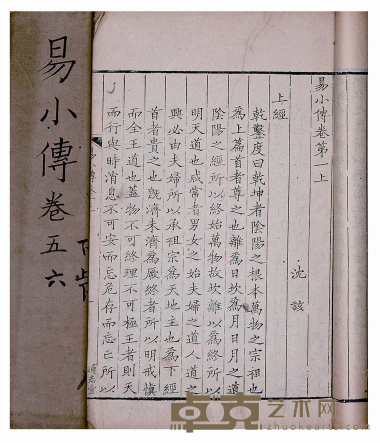 易小傳卷五六
易小傳卷第一上
沈該
上經
乾鑿度曰乾坤者陰陽之根本萬物之宗祖也
為上篇首者尊之也離為日坎為月日月之道
陰陽之經所以終始萬物故坎離以為終所以
明天道也咸常者男女之始夫婦之道人道之
興必由夫婦所以承祖宗為天地主也為下經
首者貴之也既濟未濟為㝡終者所以明戒慎
而全王道也蓋物不可終理不可極王者則天
而行與時消息不可安而忘危存而忘亡所以
卓克艺术网
www.zhuokearts.com